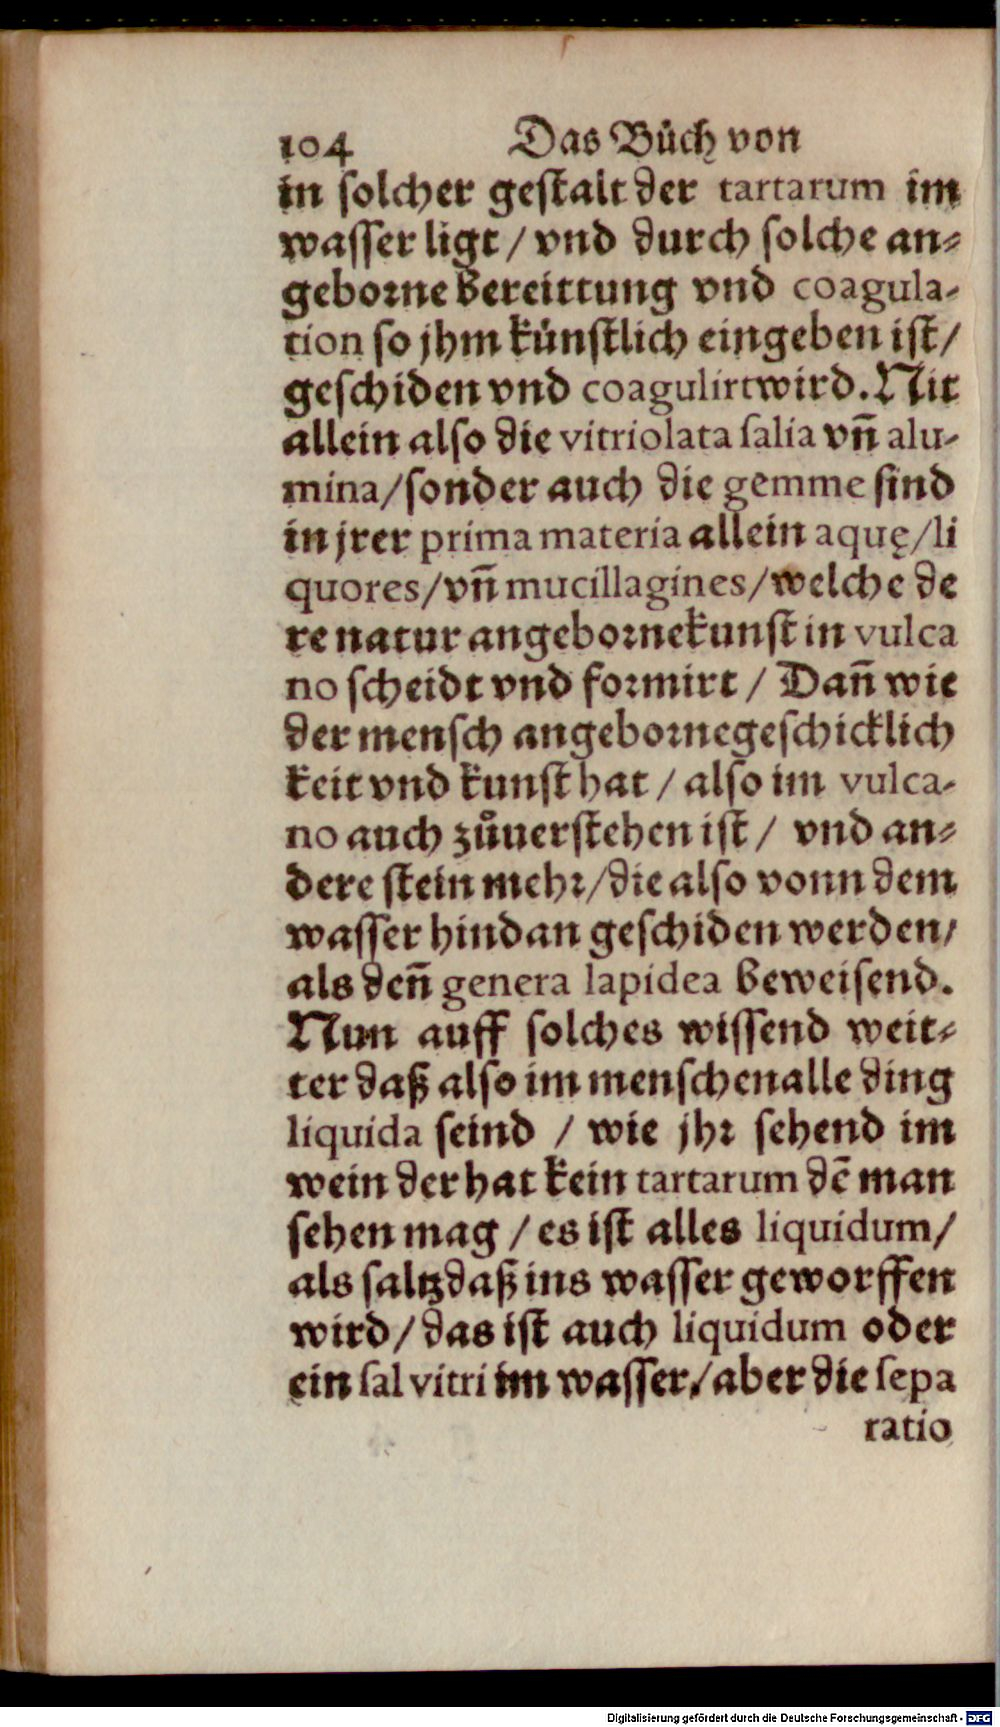 104 Das Bůch von
in solcher gestalt der tartarum im
wasser ligt / vnd durch solche an⸗
geborne bereittung vnd coagula-
tion so jhm künstlich eingeben ist /
geschiden vnd coagulirt wird. Nit
allein also die vitriolata salia vñ alu-
mina / sonder auch die gemme sind
in jrer prima materia allein aquę / li
quores / vñ mucillagines / welche de
re natur angeborne kunst in vulca
no scheidt vnd formirt / Dañ wie
der mensch angeborne geschicklich
keit vnd kunst hat / also im vulca-
no auch zůuerstehen ist / vnd an⸗
dere stein mehr / die also vonn dem
wasser hindan geschiden werden /
als deñ genera lapidea beweisend.
Nun auff solches wissend weit⸗
ter daß also im menschen alle ding
liquida seind / wie jhr sehend im
wein der hat kein tartarum dẽ man
sehen mag / es ist alles liquidum /
als saltz daß ins wasser geworffen
wird / das ist auch liquidum oder
ein sal vitri im wasser / aber die sepa
ratio
Digitalisierung gefördert durch die Deutsche Forschungsgemeinschaft - DFG